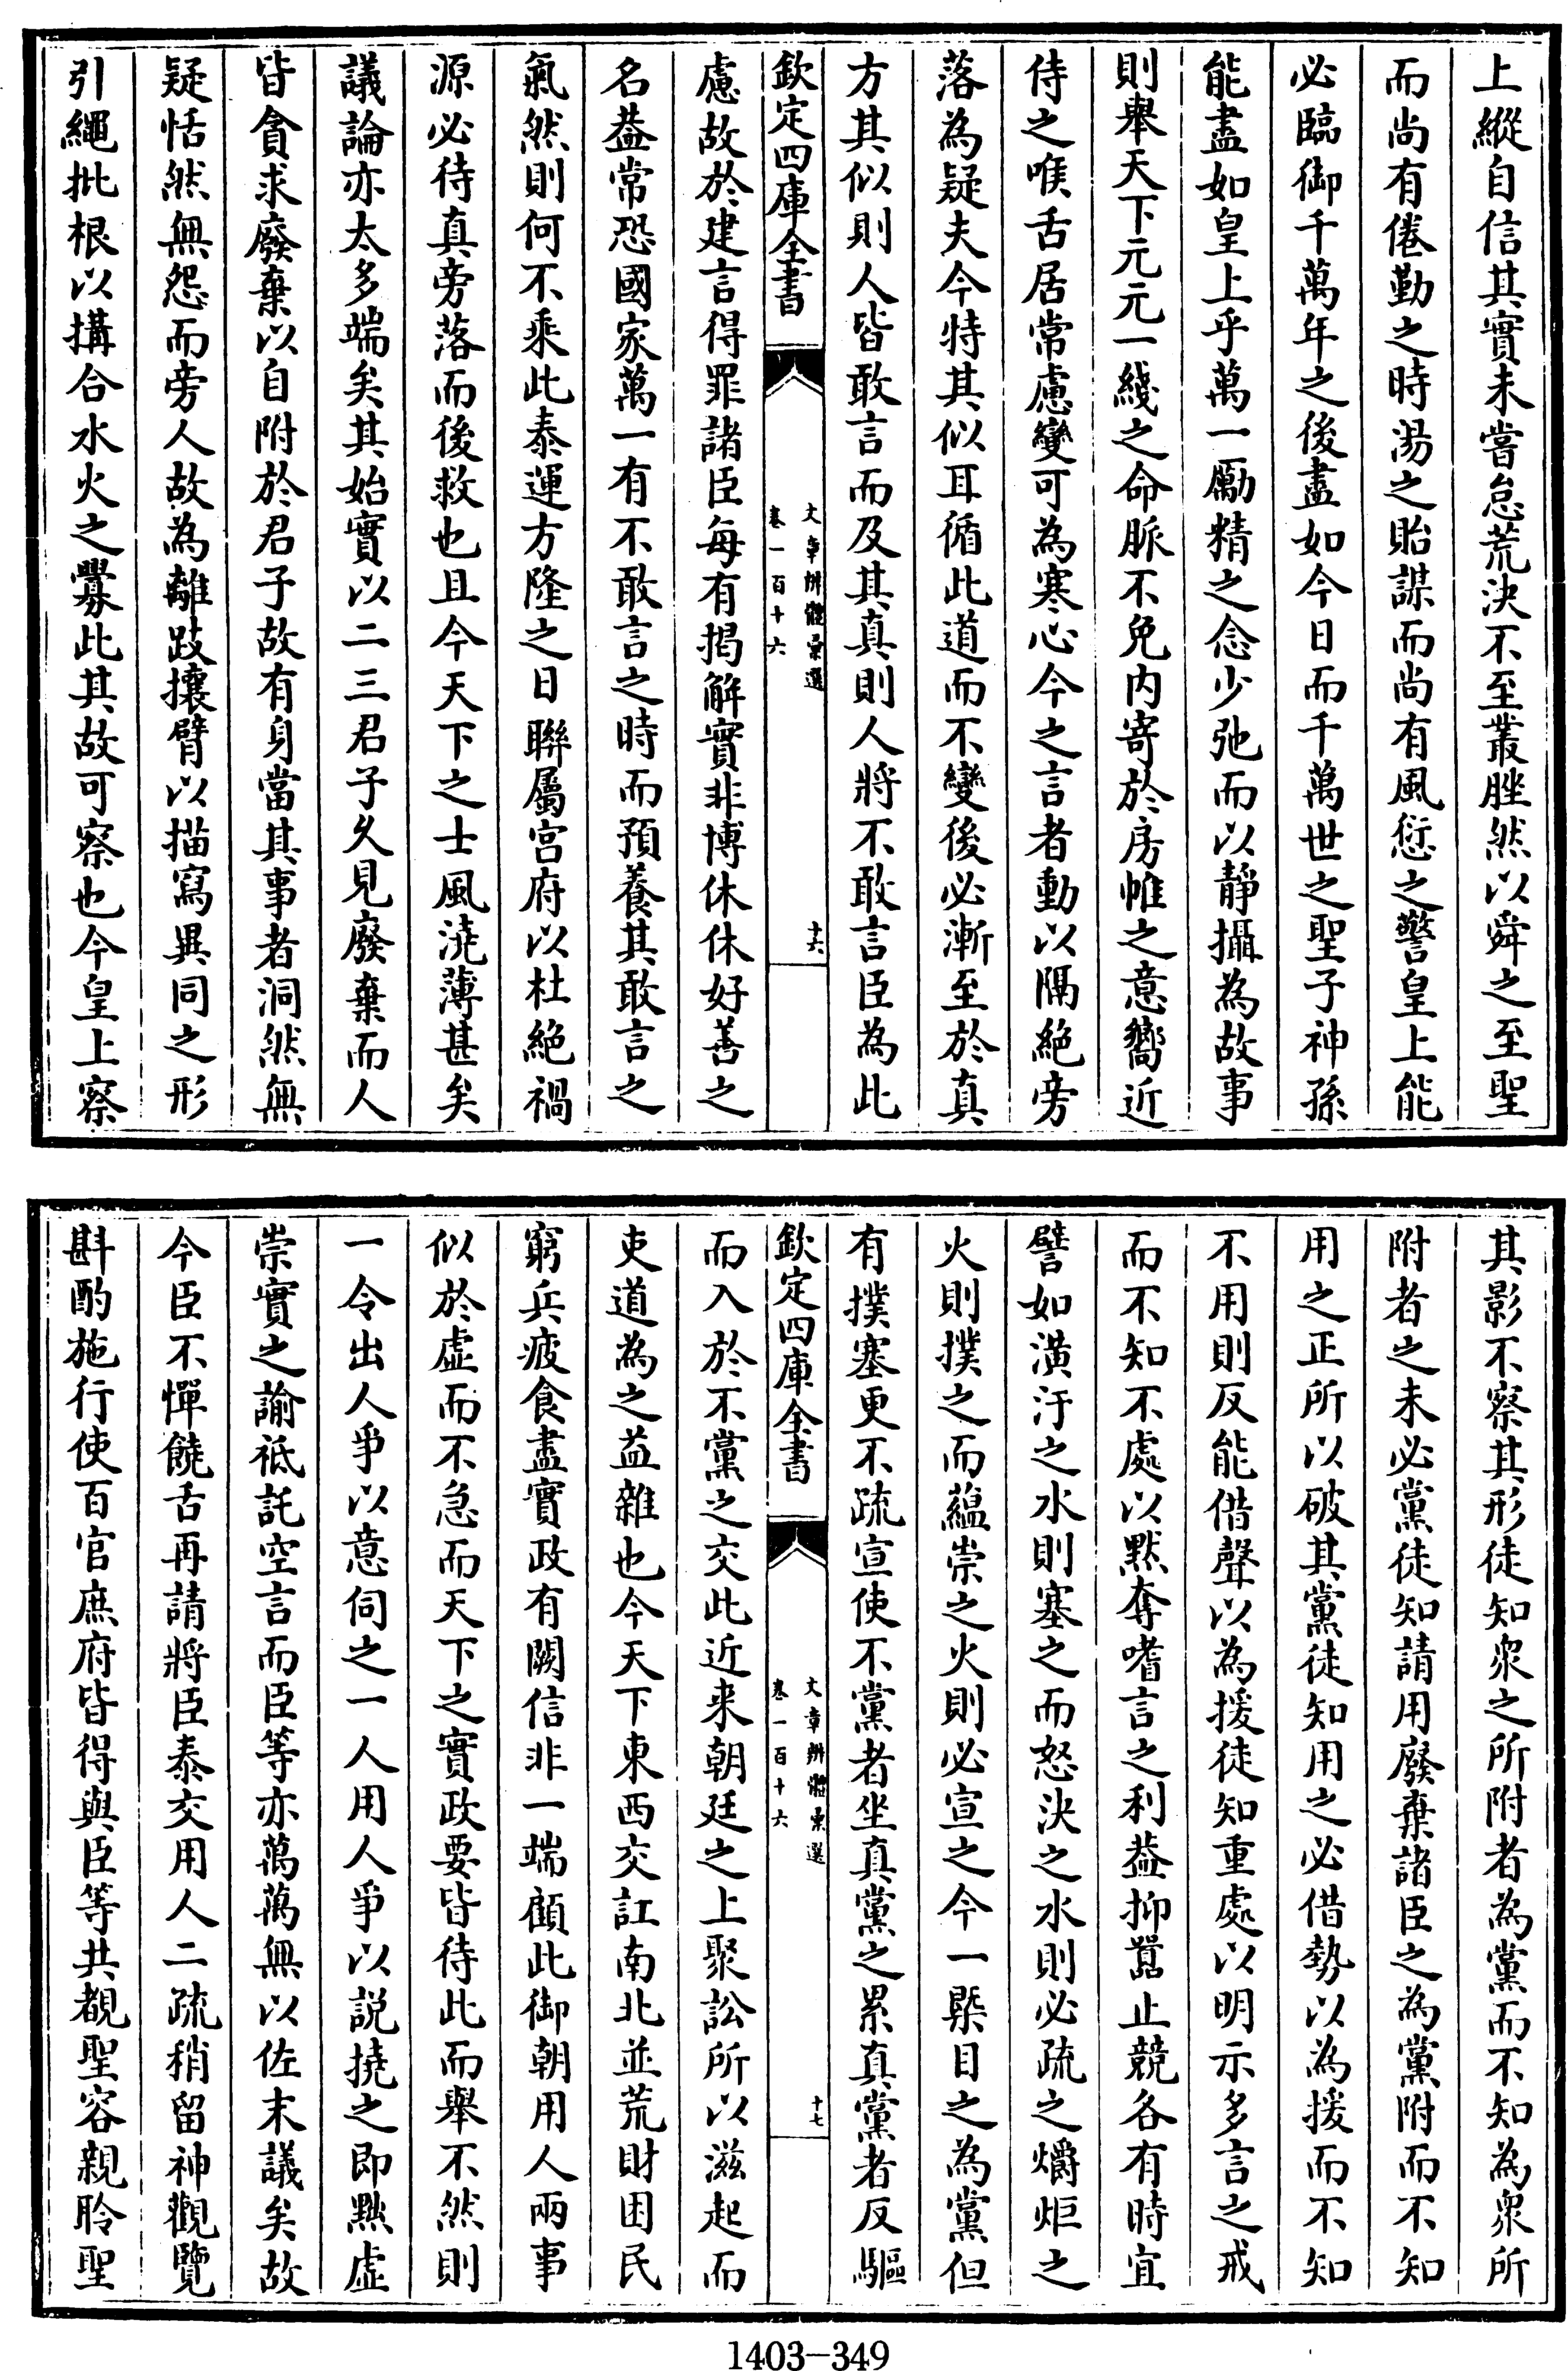 上縱自信其實未嘗怠荒決不至叢脞然以舜之至聖
而尚有倦勤之時湯之貽謀而尚有風愆之警皇上能
必臨御千萬年之後盡如今日而千萬世之聖子神孫
能盡如皇上乎萬一勵精之念少弛而以靜攝為故事
則舉天下元元一綫之命脈不免内寄於房帷之意嚮近
侍之喉舌居常慮變可為寒心今之言者動以隔絶旁
落為疑夫今特其似耳循此道而不變後必漸至於真
方其似則人皆敢言而及其真則人將不敢言臣為此
欽定四庫全書
文章辨體彙選
卷一百十六
十六
慮故於建言得罪諸臣每有揭解實非博休休好善之
名葢常恐國家萬一有不敢言之時而預養其敢言之
氣然則何不乘此泰運方隆之日聯屬宫府以杜絶禍
源必待真旁落而後救也且今天下之士風澆薄甚矣
議論亦太多端矣其始實以二三君子久見廢棄而人
皆貪求廢棄以自附於君子故有身當其事者洞然無
疑恬然無怨而旁人故為離跂攘臂以描寫異同之形
引繩批根以搆合水火之釁此其故可察也今皇上察
其影不察其形徒知衆之所附者為黨而不知為衆所
附者之未必黨徒知請用廢棄諸臣之為黨附而不知
用之正所以破其黨徒知用之必借勢以為援而不知
不用則反能借聲以為援徒知重處以明示多言之戒
而不知不處以黙奪嗜言之利葢抑囂止競各有時宜
譬如潢汙之水則塞之而怒決之水則必疏之爝炬之
火則撲之而藴崇之火則必宣之今一槩目之為黨但
有撲塞更不疏宣使不黨者坐真黨之累真黨者反驅
欽定四庫全書
文章辨體彙選
卷一百十六
十七
而入於不黨之交此近来朝廷之上聚訟所以滋起而
吏道為之益雜也今天下東西交訌南北並荒財困民
窮兵疲食盡實政有闕信非一端顧此御朝用人兩事
似於虚而不急而天下之實政要皆待此而舉不然則
一令出人爭以意伺之一人用人爭以説撓之即㸃虚
崇實之諭祇託空言而臣等亦萬萬無以佐末議矣故
今臣不憚饒舌再請將臣泰交用人二疏稍留神觀覽
斟酌施行使百官庶府皆得與臣等共覩聖容親聆聖
1403-349